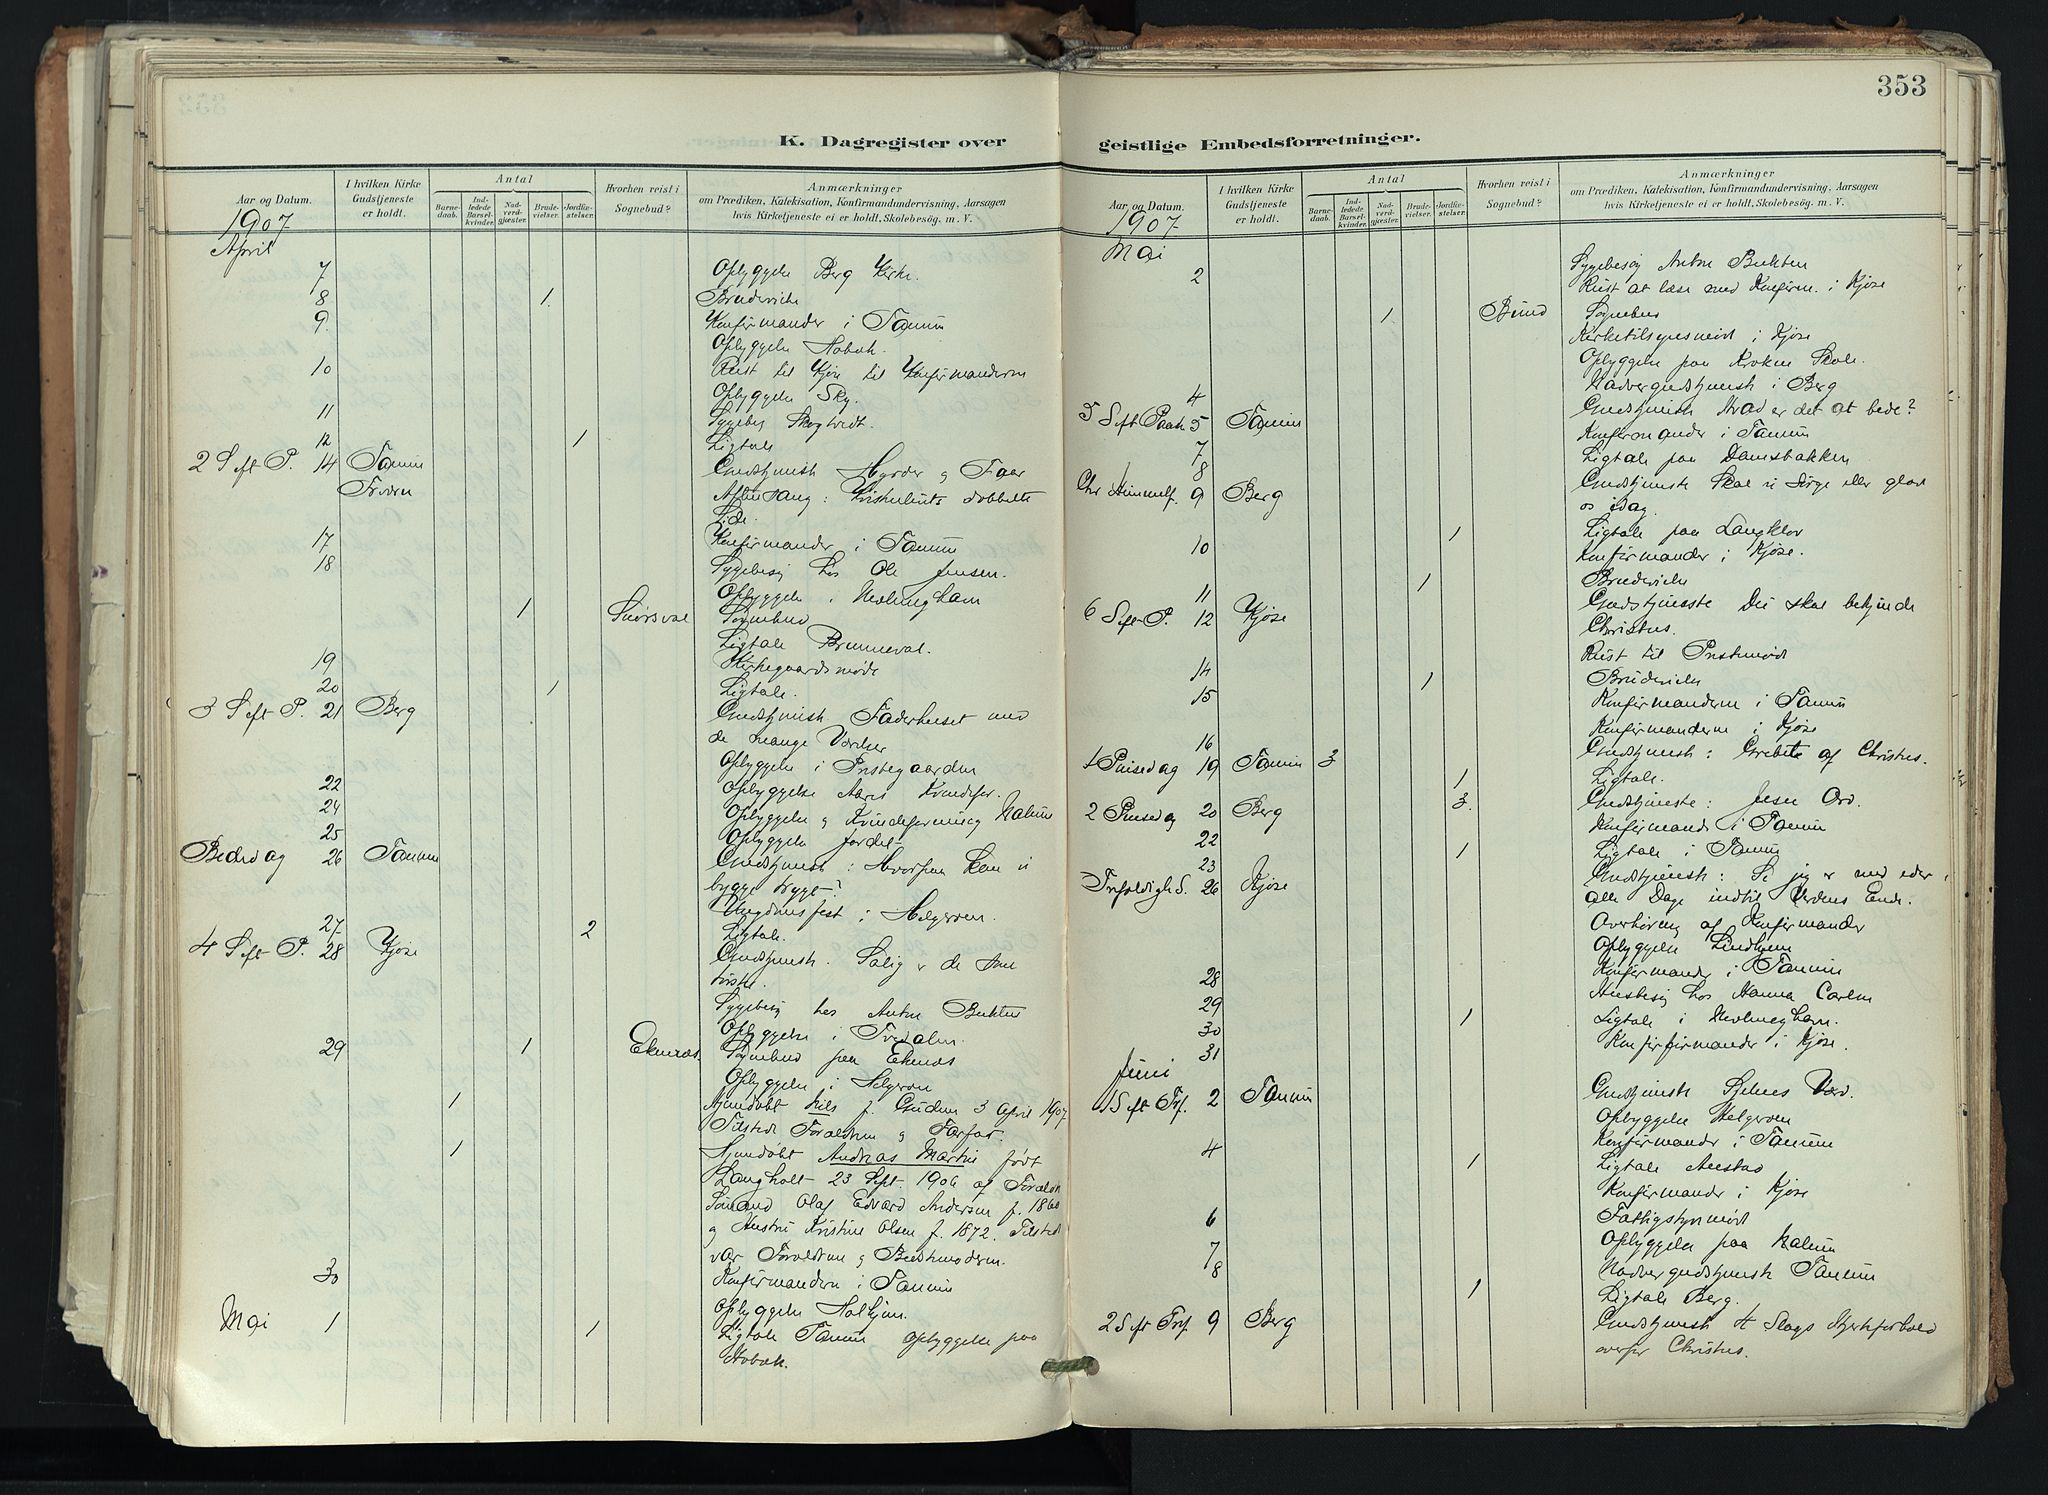 353
K. Dagregister over
geistlige Embedsforretninger.
Aar og Datum.
I hvilken Kirke Gudstjeneste er holdt.
Antal
Barnedaab.
Indledede Barselkvinder.
Nadverdgjæster.
Brudevielser.
Jordfæstelser.
Hvorhen reist i Sognebud?
Anmærkninger
om Prædiken, Katekisation, Konfirmandundervisning, Aarsagen
hvis Kirketjeneste ei er holdt, Skolebesøg. m. V.
1907
April
7 Opbyggelse Berg Kirke.
8 1. Brudevielse
9. Konfirmander i Tanum
Opbyggelse Hobæk.
10 Reist til Kjøse til Konfirmanderne
Opbyggelse Sky.
11 Sygebes. Skogtvedt.
12 1 Ligtale
2 S. eft P. 14 Tanum Gudstjeneste Hyrder og Faar
Aftensang: Kristenlivets dobbelte
Side.
17 Konfirmander i Tanum
18 Sygebesøg hos Ole Jensen.
Opbyggelse i Nevlunghavn
1 Sognebud
Ligtale Brunneval.
19 Kirkegaardsmøde
20 1 Ligtale.
3 S. eft P. 21 Berg Gudstjeneste Faderhuset med
de mange Værelser
Opbyggelse i Prestegaarden
22 Opbyggelse Kvindefor.
24 Opbyggelse og Kvindeforening Nalum
25 Opbyggelse
Bededag 26 Tanum Gudstjeneste: Hvorpaa kan vi
bygge trygt?
Ungdomsfest i Helgeroen.
27 2 Ligtale.
4 S. eft P. 28 Kjøse Gudstjeneste. Salig er de som
Sygebesøg hos Anton Bukten
Opbyggelse i Tvedalen.
29 1 Ekenæs. Sognebud paa Ekenæs
Opbyggelse i Helgeroen
1 Hjemdøbt Nils f. Gudem 3 April 1907
Tilstede Forældrene og Farfar.
1 Hjemdøbt Andreas Martin født
Langholt 23 Sept. 1906 af Forældre
Sømand Olaf Edvard Andersen f. 1860
og Hustru Kristine Olsen f. 1872. Tilstede
var Forældrene og Bedstemoderen.
30 Konfirmanderne i Tanum
Opbyggelse
Mai 1 1 Ligtale Tanum Opbyggelse paa
Hobæk.
Aar og Datum.
I hvilken Kirke Gudstjeneste er holdt.
Antal
Barnedaab.
Indledede Barselkvinder.
Nadverdgjæster.
Brudevielser.
Jordfæstelser.
Hvorhen reist i Sognebud?
Anmærkninger
om Prædiken, Katekisation, Konfirmandundervisning, Aarsagen
hvis Kirketjeneste ei er holdt, Skolebesøg. m. V.
1907
Mai
Sygebesøg Anton Bukten
2 Reist at læse med Konfirm. i Kjøse
1 Sognebud
Kirketilsynsmøde i Kjøse
Opbyggelse paa Kroken Skole.
4 Nadvergudstjeneste i Berg
5 S eft Paask 5 Tanum Gudstjeneste Hvad er det at bede?
7 Konfirmander i Tanum
8 Ligtale paa Damsbakken
Chr Himmelf. 9 Berg Gudstjeneste Skal vi sørge eller glæde
os idag.
1 Ligtale paa Langklov
10 Konfirmander i Kjøse.
11 1 Brudevielse
6 S eft P. 12 Kjøse Gudstjeneste De skal bekjende
Christus.
14 Reist til Prestemøde
15 1 Brudevielse
Konfirmanderne i Tanum
16 Konfirmanderne i Kjøse
1 Pinsedag 19 Tanum 3 Gudstjeneste: Grebet af Christus.
1 Ligtale.
2 Pinsedag 20 Berg 3. Gudstjeneste: Jesu Ord.
22 Konfirmander i Tanum
23 1 Ligtale i Tanum
Trefoldigh S. 26 Kjøse Gudstjeneste: Se jeg er med eder
alle Dage indtil Verdens Ende.
Overhøring af Konfirmander
Opbyggelse Lindhjem
28 Konfirmander i Tanum
29 Husbesøg hos Hanna Carlsen
30 1 Ligtale i Nevlunghavn.
31 Konfirfirmander i Kjøse.
Juni
1 S eft Trf. 2 Tanum Gudstjeneste Sjelens Værd.
Opbyggelse Helgeroen
4 Konfirmander i Tanum
1 Ligtale Anestad
Konfirmander i Kjøse
6 Fattigstyremøde
7 Opbyggelse paa Nalum
8 Nadvergudstjeneste Tanum
1 Ligtale Berg.
2 S eft Trf. 9 Berg Gudstjeneste 4 Slags Hjerteforhold
overfor Christus.